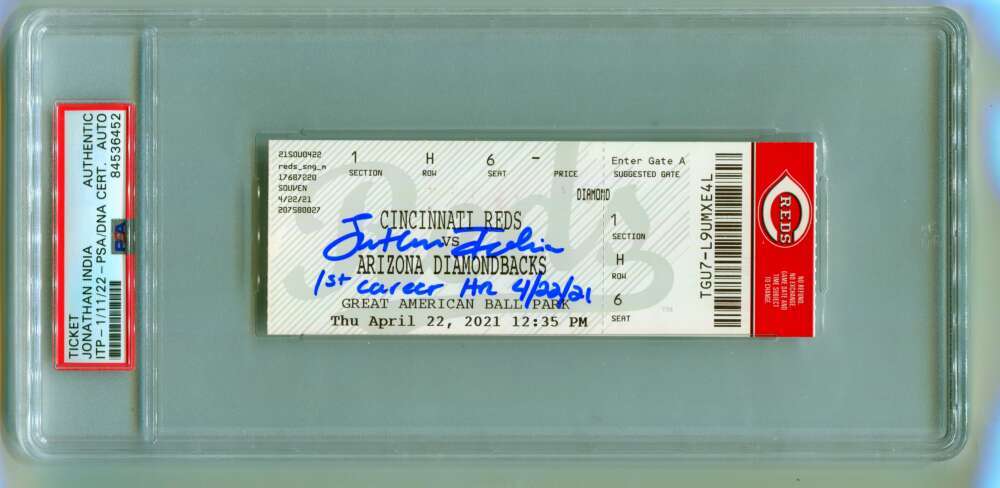 TICKET AUTHENTIC
JONATHAN INDIA
ITP - 1/11/22 - PSA/DNA CERT. AUTO
84536452
PSA
21SOU0422
reds_sng_n
17687220
SOUVEN
4/22/21
207580027
1 H 6 -
SECTION ROW SEAT PRICE
Enter Gate A
SUGGESTED GATE
DIAMOND
Reds
CINCINNATI REDS
VS
Jonathan India
ARIZONA DIAMONDBACKS
1st career HR 4/22/21
GREAT AMERICAN BALL PARK
Thu April 22, 2021 12:35 PM
1
SECTION
H
ROW
6
SEAT
TM
TGU7-L9UMXE4L
REDS
NO REFUND,
NO EXCHANGE
GAME DATE AND
TIME SUBJECT
TO CHANGE.